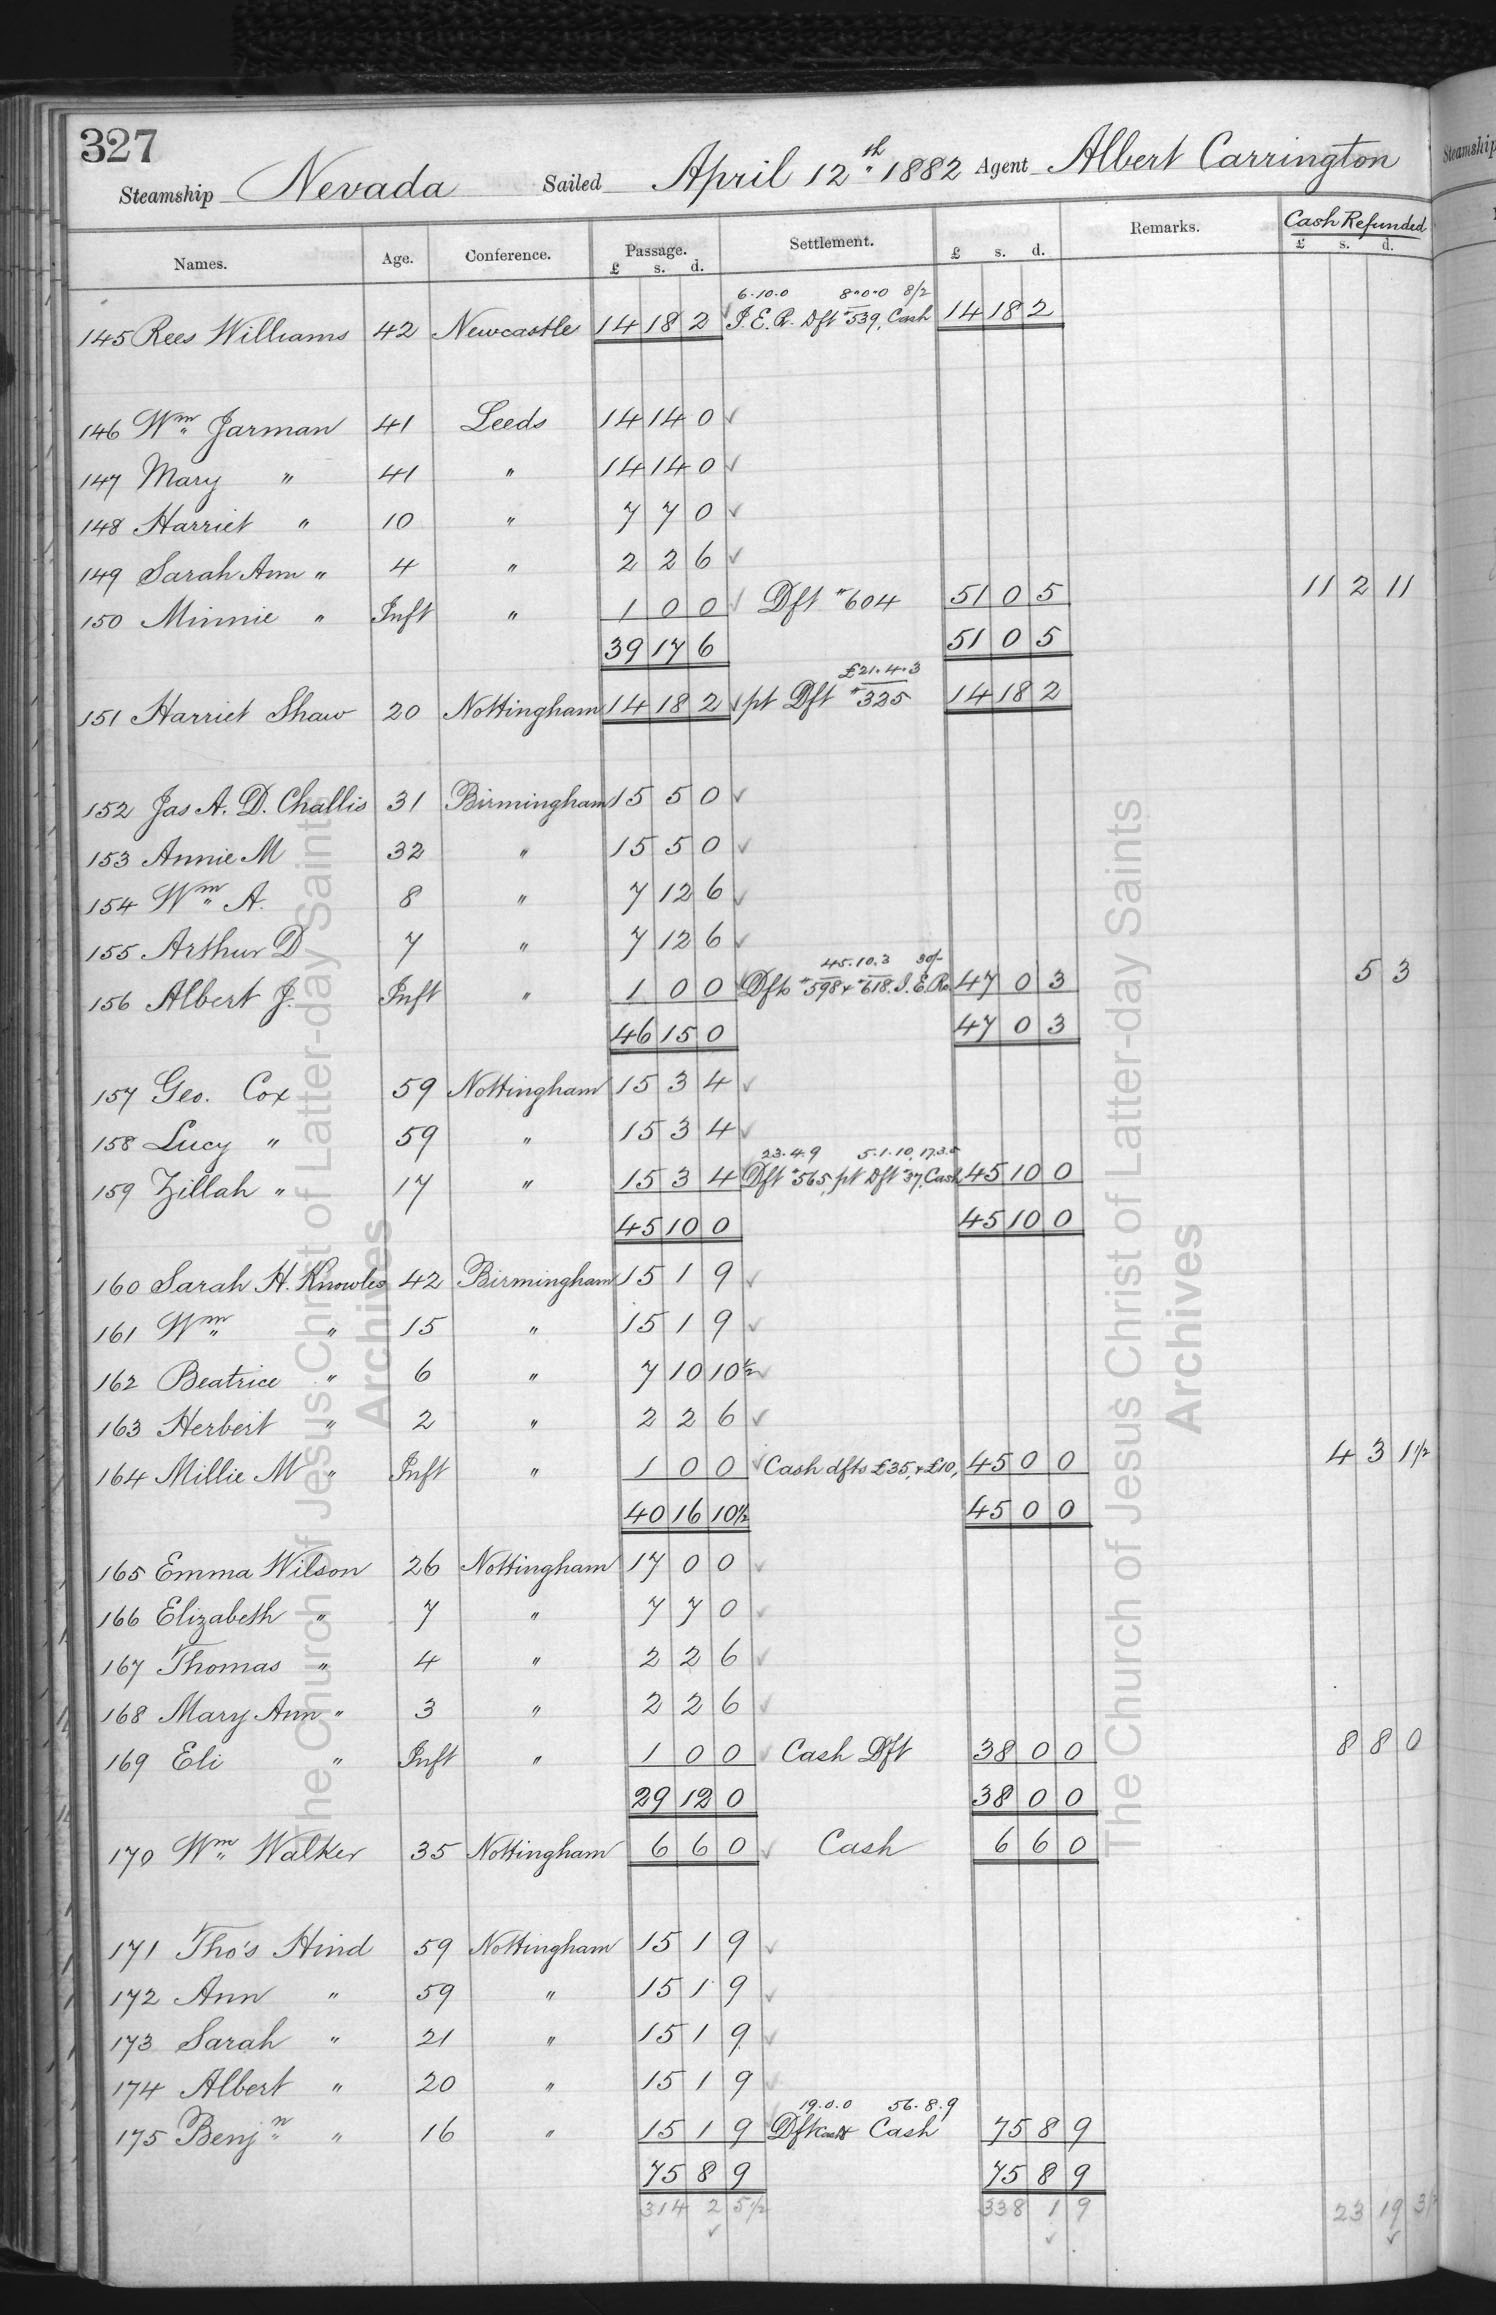 327
Steamship Nevada Sailed April 12th 1882 Agent Albert Carrington
Names. Age. Conference. Passage. £ s. d. Settlement. £ s. d. Remarks. Cash Refunded £ s. d.
6.10.0 8.0.0 8/2
145 Rees Williams 42 Newcastle 14 18 2 ✓ I.E.R. Dft #539, Cash 14 18 2
146 Wm Jarman 41 Leeds 14 14 0 ✓
147 Mary " 41 " 14 14 0 ✓
148 Harriet " 10 " 7 7 0 ✓
149 Sarah Ann " 4 " 2 2 6 ✓
150 Minnie " Inft " 1 0 0 ✓ Dft #604 51 0 5 11 2 11
39 17 6 51 0 5
£21.4.3
151 Harriet Shaw 20 Nottingham 14 18 2 ✓ pt Dft #325 14 18 2
152 Jas A. D. Challis 31 Birmingham 15 5 0 ✓
153 Annie M 32 " 15 5 0 ✓
154 Wm A. 8 " 7 12 6 ✓
155 Arthur D 7 " 7 12 6 ✓
45.10.3 30/-
156 Albert J. Inft " 1 0 0 Dfts #598 & #618. I.E.R. 47 0 3 5 3
46 15 0 47 0 3
157 Geo. Cox 59 Nottingham 15 3 4 ✓
158 Lucy " 59 " 15 3 4 ✓
23.4.9 5.1.10, 17.3.5
159 Zillah " 17 " 15 3 4 Dft #565, pt Dft #37, Cash 45 10 0
45 10 0 45 10 0
160 Sarah H. Knowles 42 Birmingham 15 1 9 ✓
161 Wm " 15 " 15 1 9 ✓
162 Beatrice " 6 " 7 10 10½ ✓
163 Herbert " 2 " 2 2 6 ✓
164 Millie M " Inft " 1 0 0 ✓ Cash dfts £35, & £10, 45 0 0 4 3 1½
40 16 10½ 45 0 0
165 Emma Wilson 26 Nottingham 17 0 0 ✓
166 Elizabeth " 7 " 7 7 0 ✓
167 Thomas " 4 " 2 2 6 ✓
168 Mary Ann " 3 " 2 2 6 ✓
169 Eli " Inft " 1 0 0 ✓ Cash Dft 38 0 0 8 8 0
29 12 0 38 0 0
170 Wm Walker 35 Nottingham 6 6 0 ✓ Cash 6 6 0
171 Tho's Hind 59 Nottingham 15 1 9 ✓
172 Ann " 59 " 15 1 9 ✓
173 Sarah " 21 " 15 1 9 ✓
174 Albert " 20 " 15 1 9 ✓
19.0.0 56.8.9
175 Benjn " 16 " 15 1 9 Dft Cash 75 8 9
75 8 9 75 8 9
314 2 5½ 338 1 9 23 19 3½
✓ ✓ ✓
The Church of Jesus Christ of Latter-day Saints
Archives
The Church of Jesus Christ of Latter-day Saints
Archives
Steamship